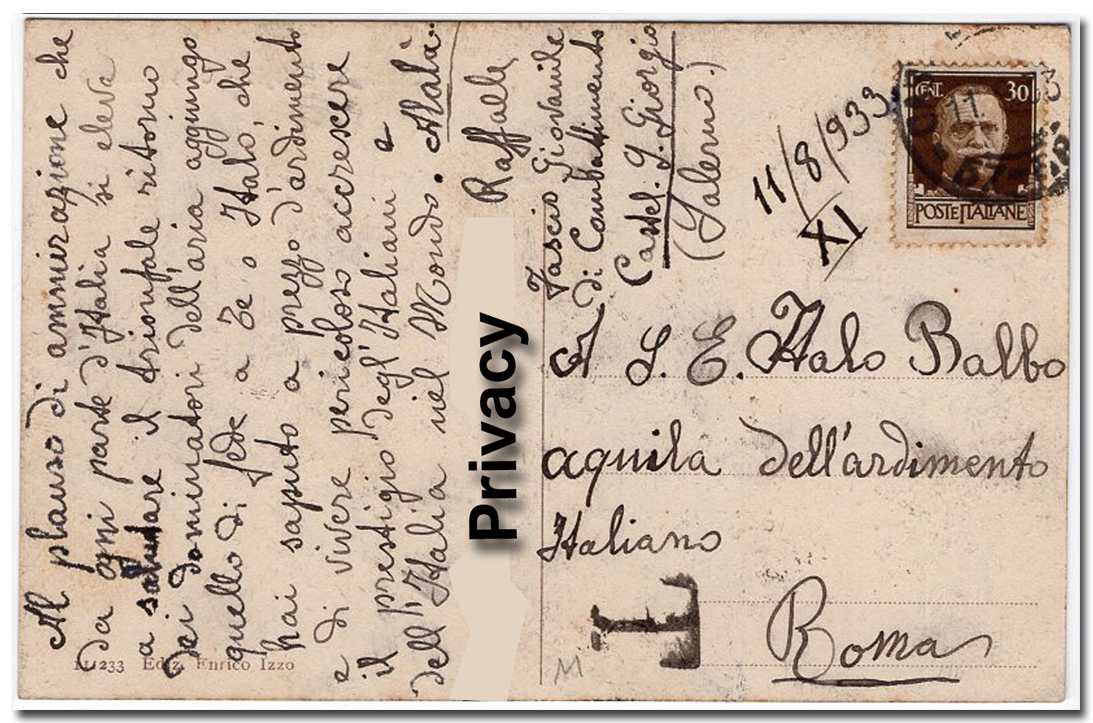 Al plauso di ammirazione che
da ogni parte d'Italia si eleva
a salutare il trionfale ritorno
dei dominatori dell'aria aggiungo
quello di fede a Te o Italo, che
hai saputo a prezzo d'ardimento
e di vivere pericoloso accrescere
il prestigio degl'Italiani e
dell'Italia nel Mondo. Alalà
Raffaele
Privacy
Fascio Giovanile
di Combattimento
Castel. S. Giorgio
(Salerno.)
11/8/933
XI
CENT. 30
POSTE ITALIANE
11.
A S. E. Italo Balbo
aquila dell'ardimento
Italiano
Roma
T
M
111233 Ediz. Enrico Izzo